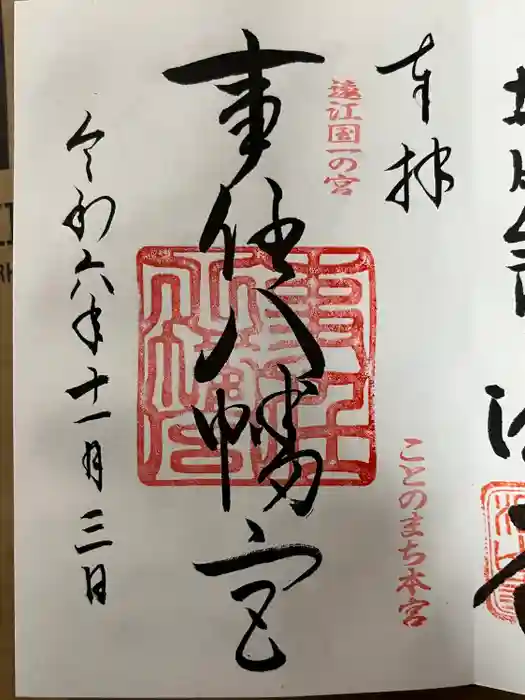 奉拝
遠江国一の宮
ことのまち本宮
事任八幡宮
令和六年十一月三日